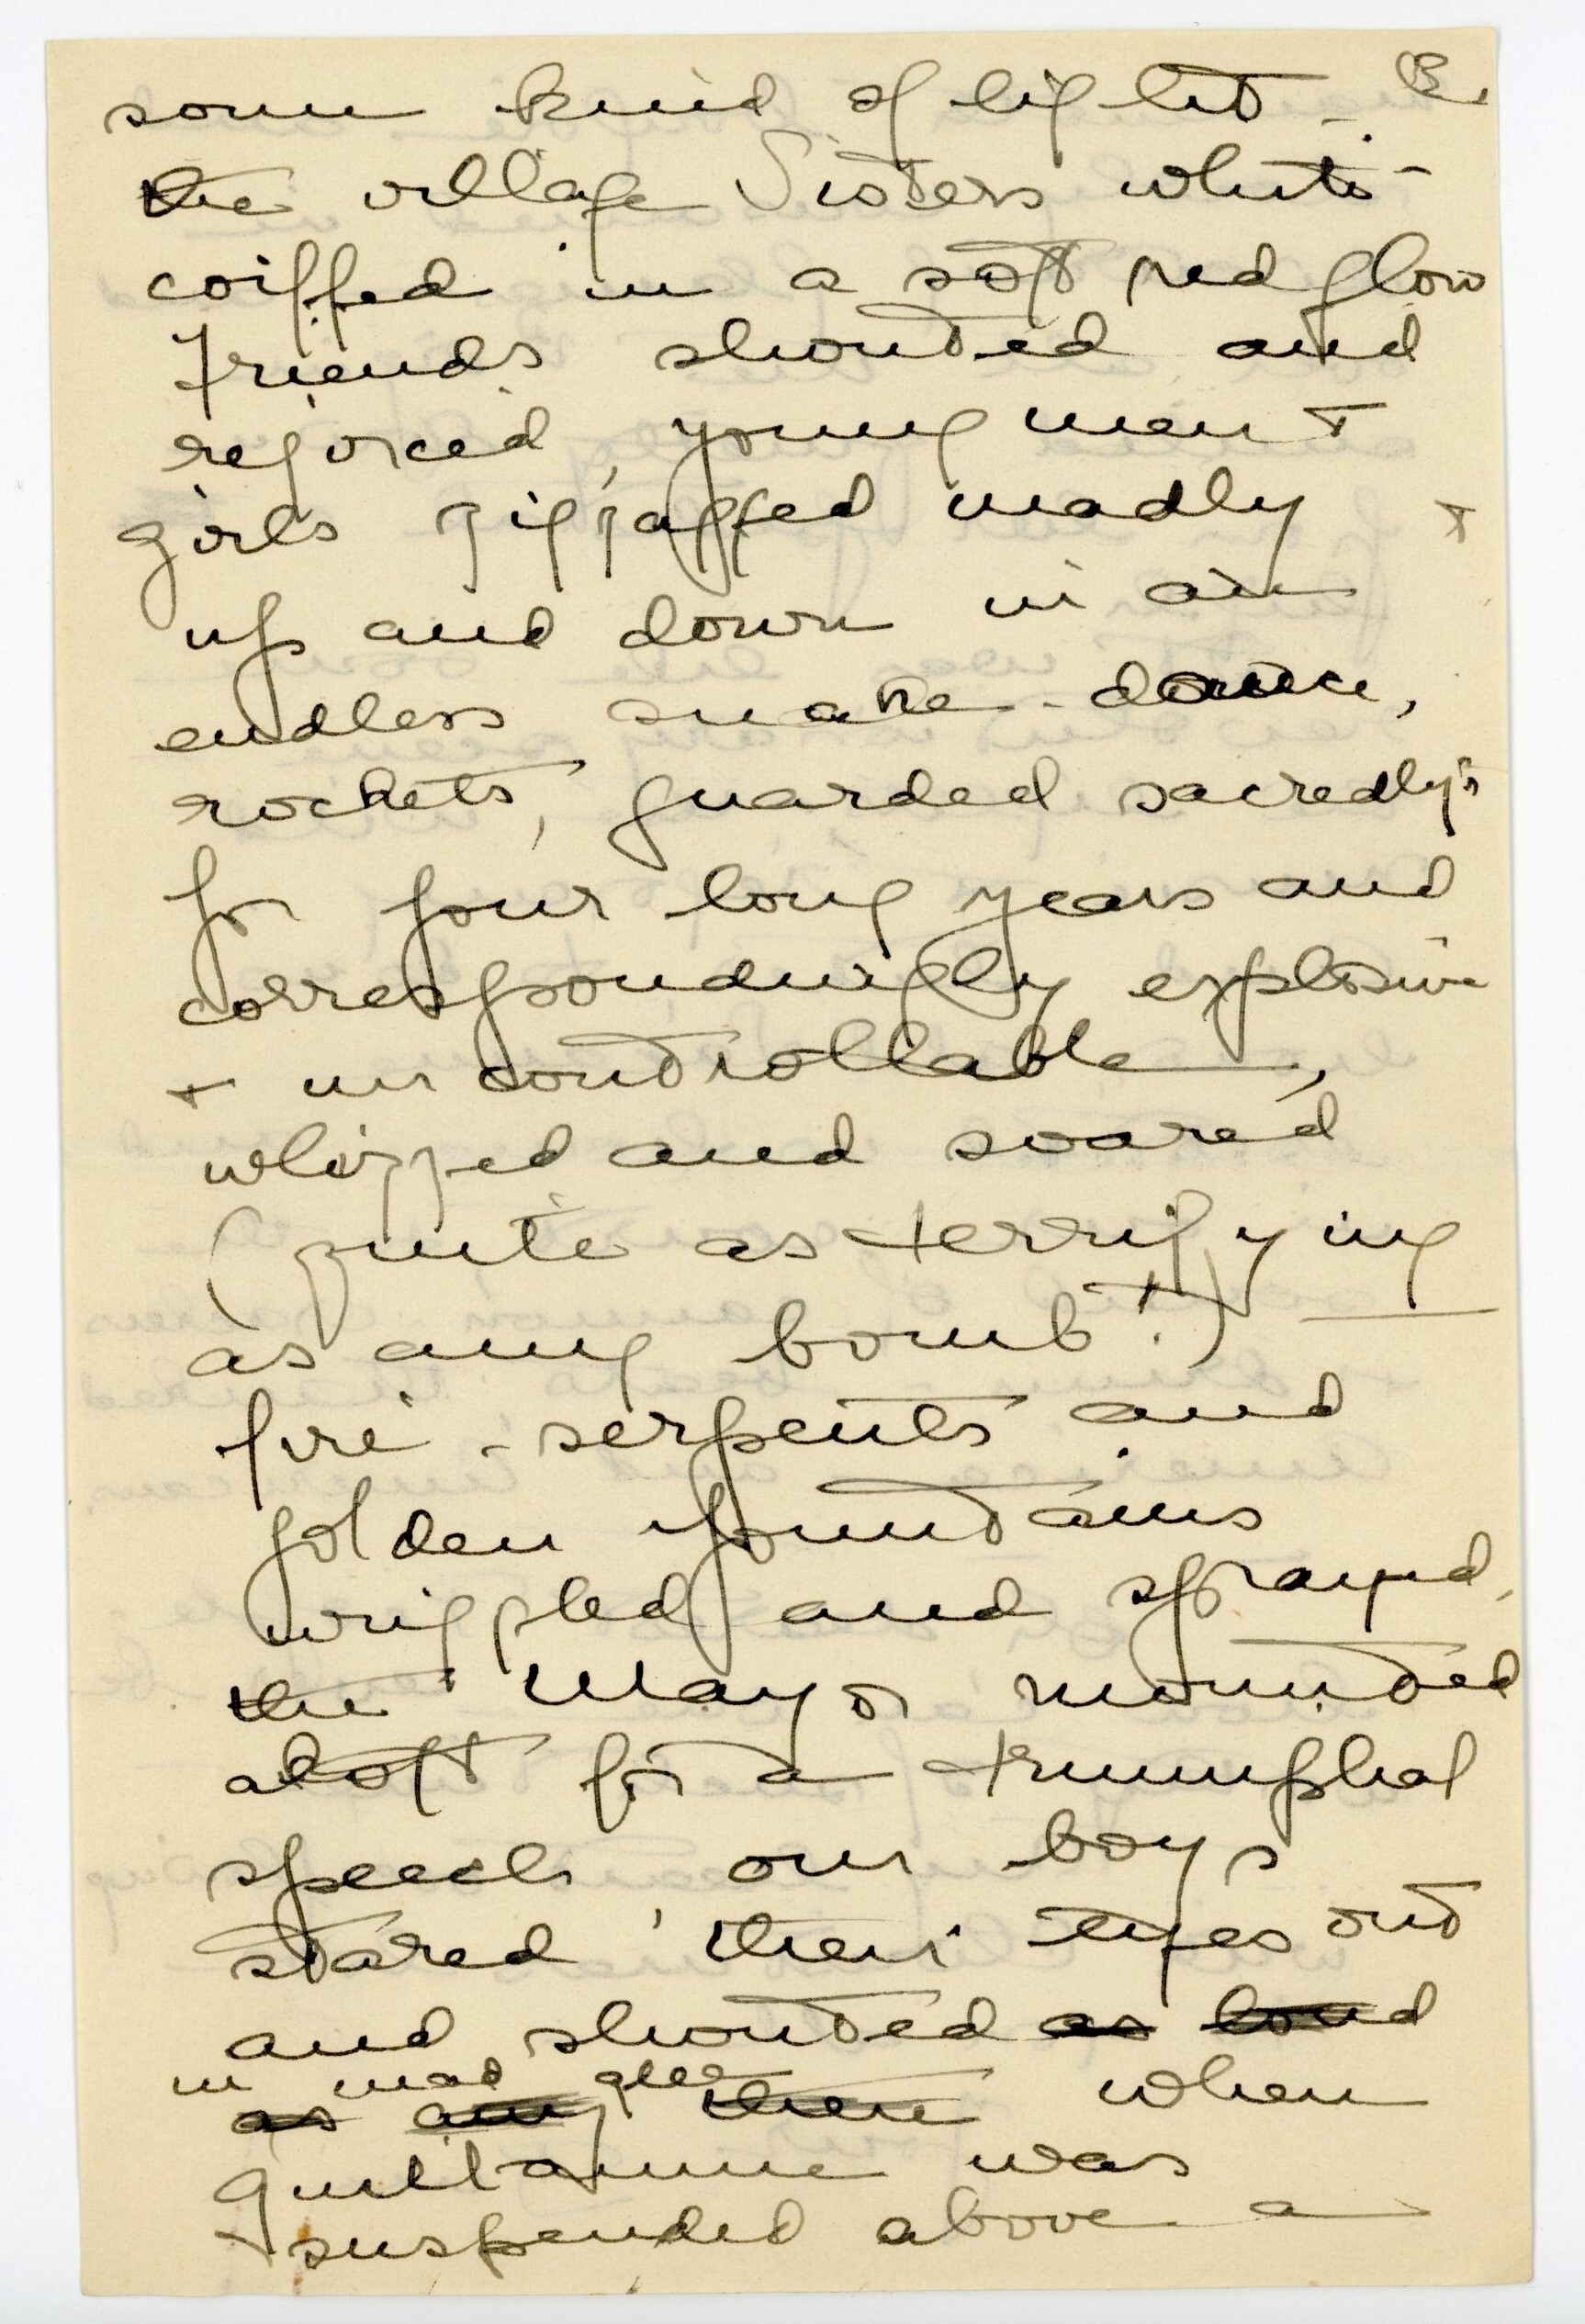 some kind of light -
the village Sisters white-
coiffed in a soft red glow
Friends shouted and
rejoiced, young men +
girls zigzagged madly +
up and down in an
endless snake-dance,
rockets, guarded sacredly
for four long years and
correspondingly explosive
+ uncontrollable,
whizzed and soared
(quite as terrifying
as any bomb!) -
fire-serpents and
golden fountains
wriggled and sprayed,
the Mayor mounted
aloft for a triumphal
speech, our boys
stared their eyes out
and shouted as loud
in mad glee
as any there when
Guillaume was
suspended above a